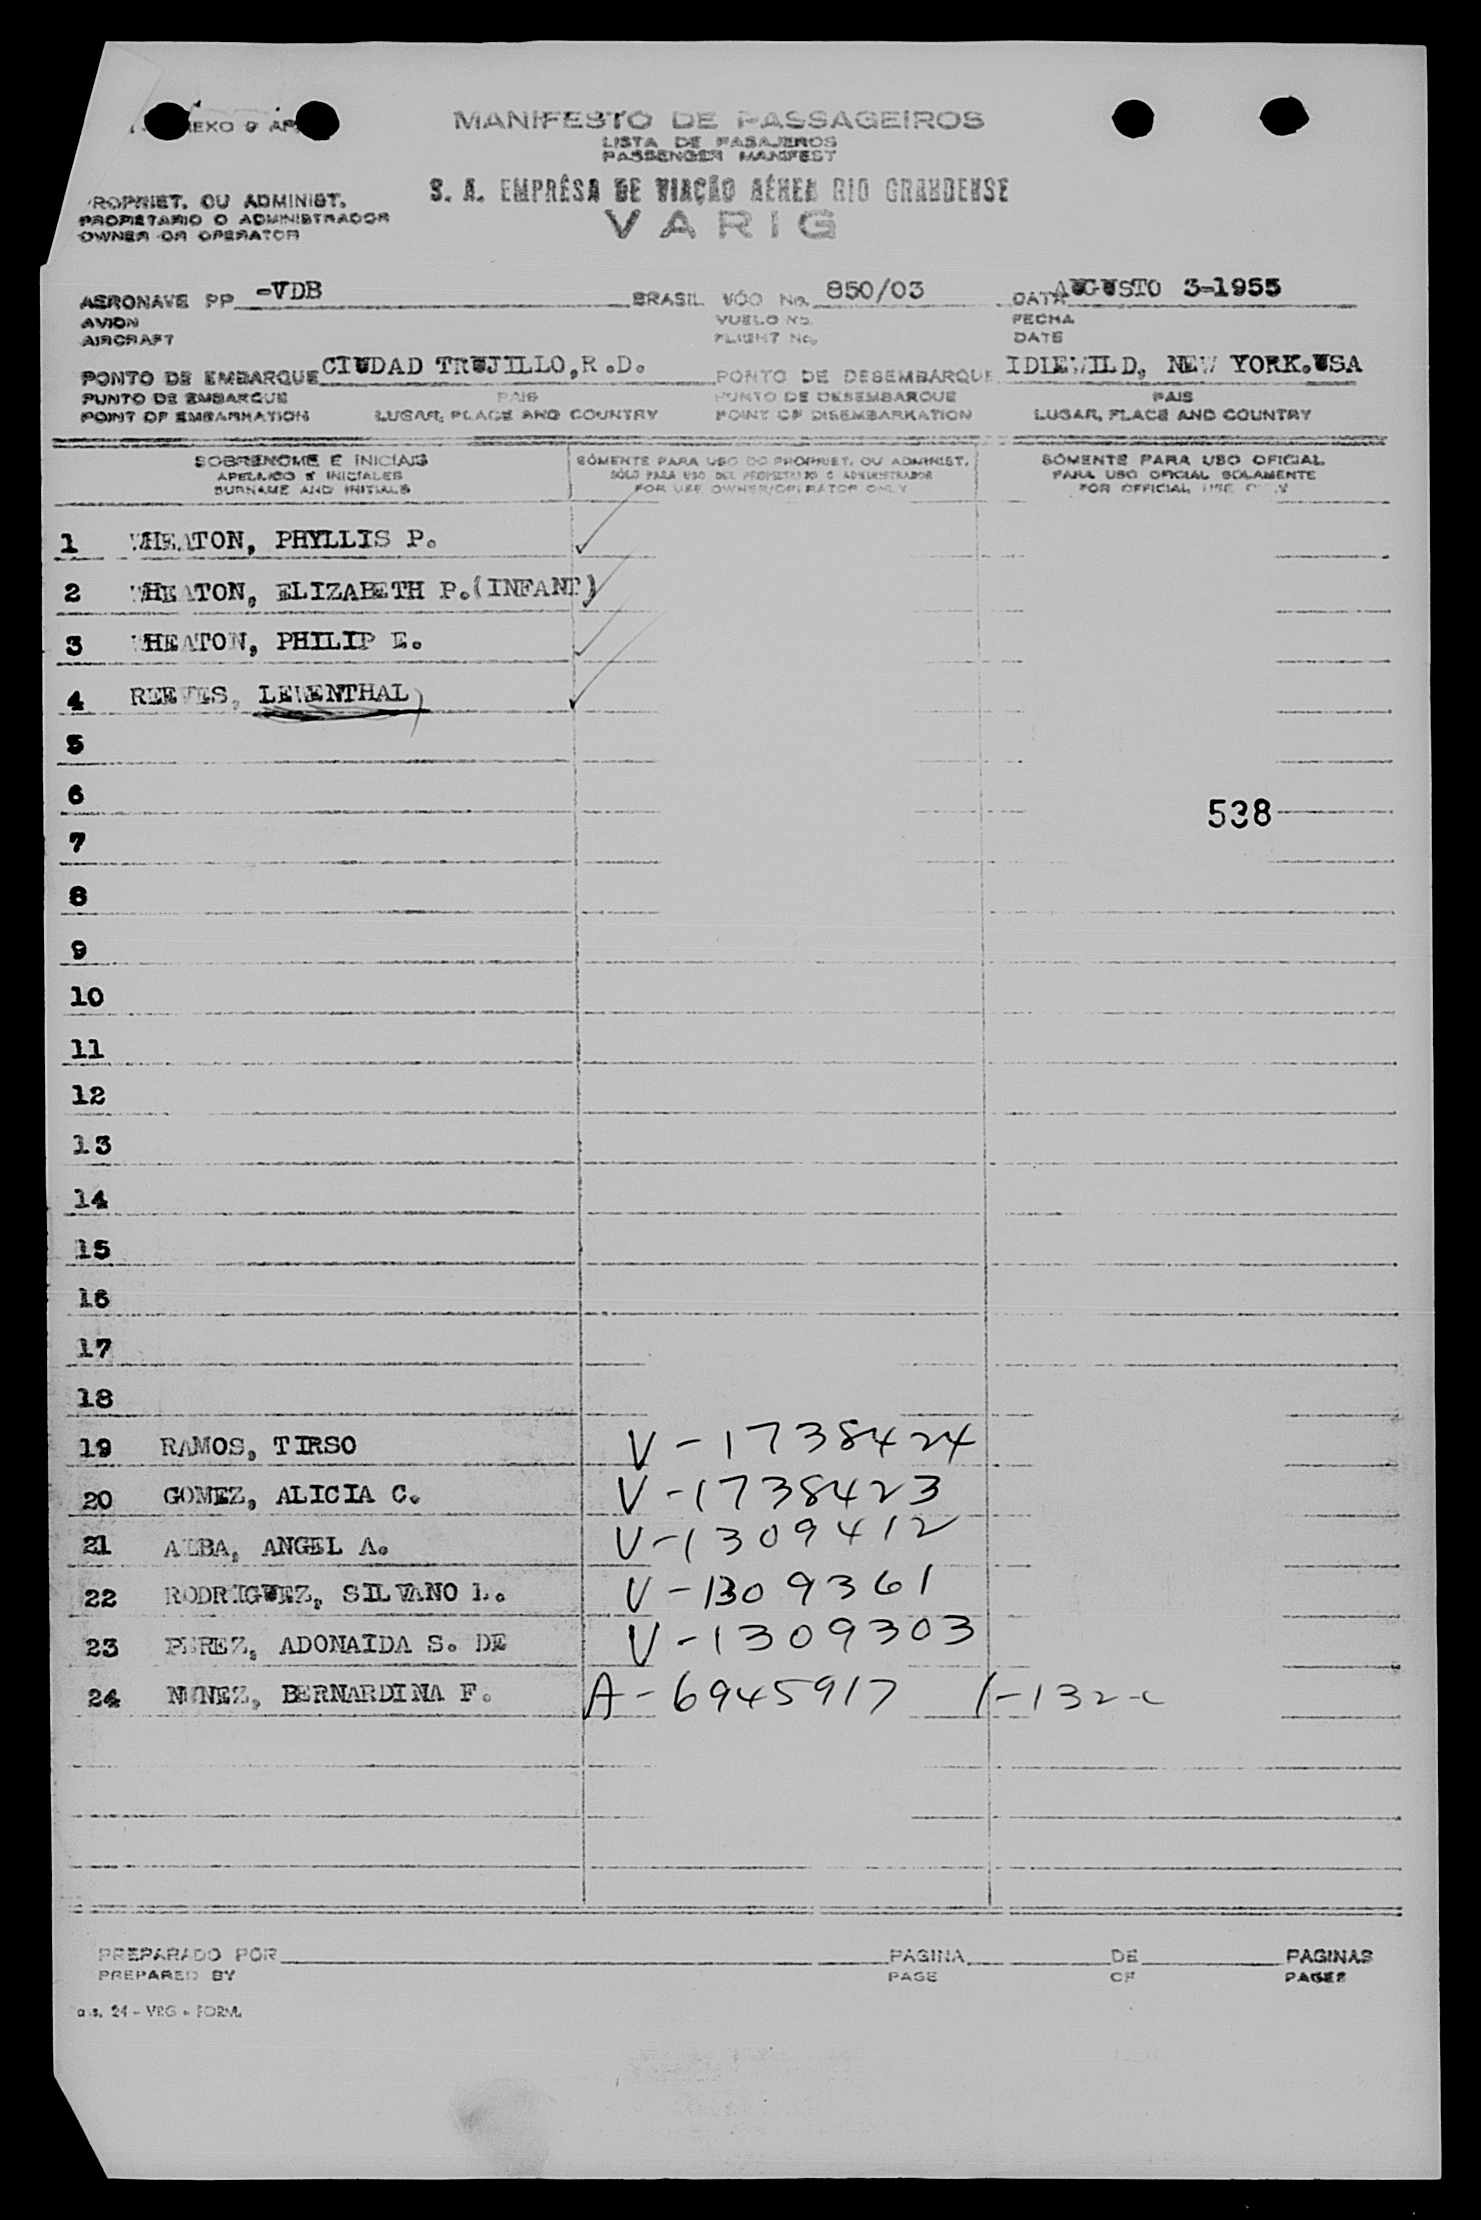 ANEXO 9 AP
MANIFESTO DE PASSAGEIROS
LISTA DE PASAJEROS
PASSENGER MANIFEST
S. A. EMPRÊSA DE VIAÇÃO AÉREA RIO GRANDENSE
VARIG
PROPRIET. OU ADMINIST.
PROPIETARIO O ADMINISTRADOR
OWNER OR OPERATOR
AERONAVE PP -VDB BRASIL VÔO No. 850/03 DATA AUGUSTO 3-1955
AVION VUELO No. FECHA
AIRCRAFT FLIGHT No. DATE
PONTO DE EMBARQUE CIUDAD TRUJILLO,R.D. PONTO DE DESEMBARQUE IDLEWILD, NEW YORK.USA
PUNTO DE EMBARQUE PAIS PUNTO DE DESEMBARQUE PAIS
POINT OF EMBARKATION LUGAR, PLACE AND COUNTRY POINT OF DISEMBARKATION LUGAR, PLACE AND COUNTRY
SOBRENOME E INICIAIS SÒMENTE PARA USO DO PROPRIET. OU ADMINIST. SÒMENTE PARA USO OFICIAL
APELLIDO E INICIALES SÓLO PARA USO DEL PROPIETARIO O ADMINISTRADOR PARA USO OFICIAL SOLAMENTE
SURNAME AND INITIALS FOR USE OWNER/OPERATOR ONLY FOR OFFICIAL USE ONLY
1 WHEATON, PHYLLIS P.
2 WHEATON, ELIZABETH P.(INFANT)
3 WHEATON, PHILIP E.
4 REEVES, LEWENTHAL
5
6 538
7
8
9
10
11
12
13
14
15
16
17
18
19 RAMOS, TIRSO V-1738424
20 GOMEZ, ALICIA C. V-1738423
21 ALBA, ANGEL A. V-1309412
22 RODRIGUEZ, SILVANO L. V-1309361
23 PEREZ, ADONAIDA S. DE V-1309303
24 NUNEZ, BERNARDINA F. A-6945917 1-132-C
PREPARADO POR PAGINA DE PAGINAS
PREPARED BY PAGE OF PAGES
24 - VRG - FORM.